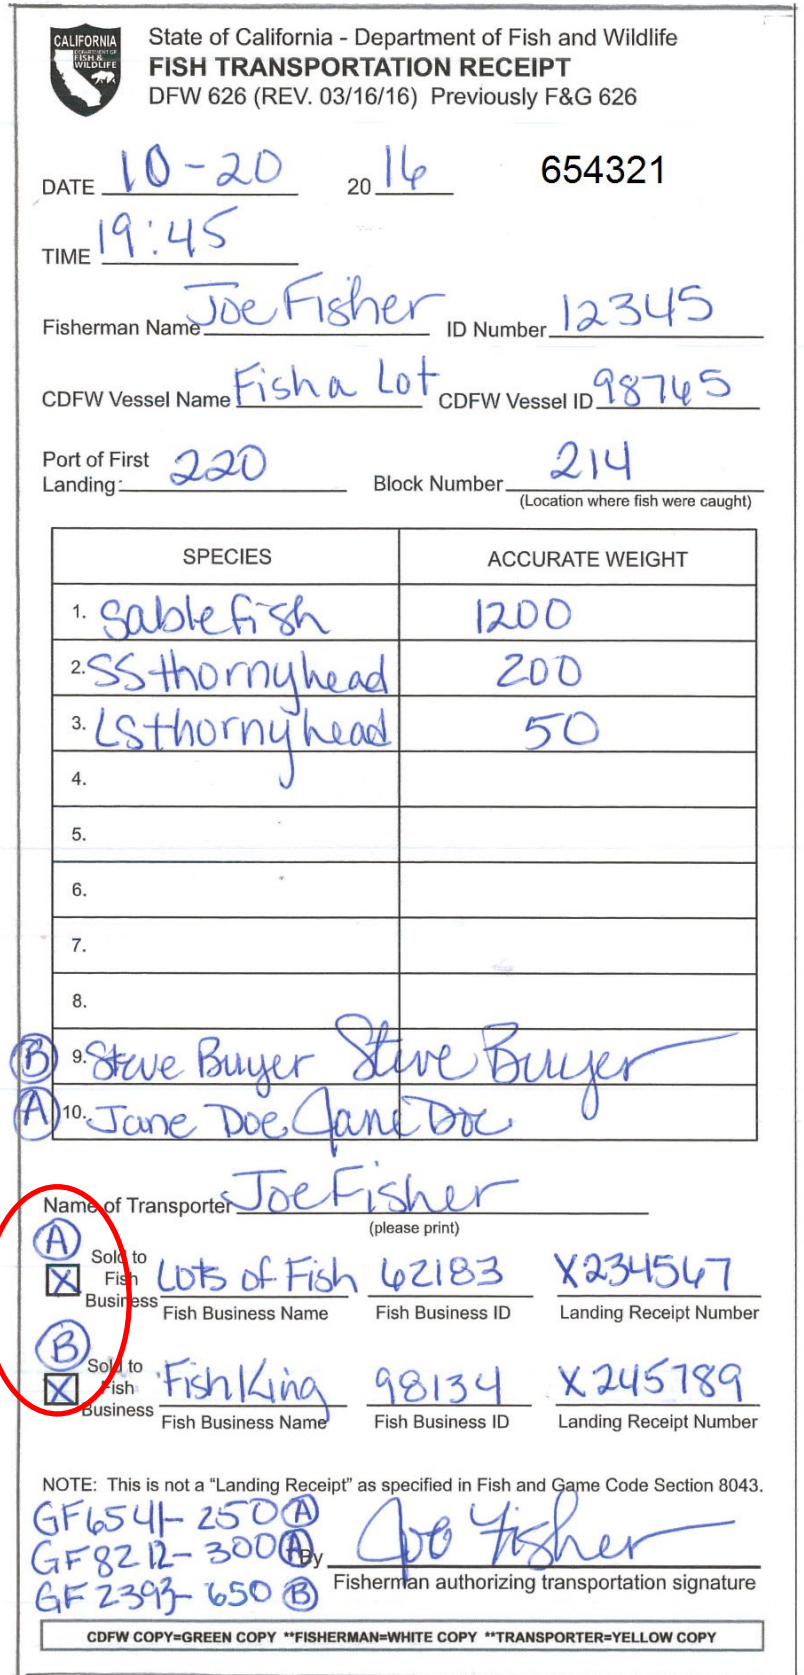 CALIFORNIA
DEPARTMENT OF
FISH &
WILDLIFE
State of California - Department of Fish and Wildlife
FISH TRANSPORTATION RECEIPT
DFW 626 (REV. 03/16/16) Previously F&G 626
DATE 10-20 2016 654321
TIME 19:45
Fisherman Name Joe Fisher ID Number 12345
CDFW Vessel Name Fish a Lot CDFW Vessel ID 98765
Port of First Landing: 220 Block Number 214
(Location where fish were caught)
SPECIES ACCURATE WEIGHT
1. Sablefish 1200
2. SS thornyhead 200
3. LS thornyhead 50
4.
5.
6.
7.
8.
B 9. Steve Buyer Steve Buyer
A 10. Jane Doe Jane Doe
Name of Transporter Joe Fisher
(please print)
A
Sold to Fish Business X Lots of Fish 62183 X234567
Fish Business Name Fish Business ID Landing Receipt Number
B
Sold to Fish Business X Fish King 98134 X245789
Fish Business Name Fish Business ID Landing Receipt Number
NOTE: This is not a "Landing Receipt" as specified in Fish and Game Code Section 8043.
GF6541-250 A
GF8212-300 A By Joe Fisher
GF2393-650 B Fisherman authorizing transportation signature
CDFW COPY=GREEN COPY **FISHERMAN=WHITE COPY **TRANSPORTER=YELLOW COPY